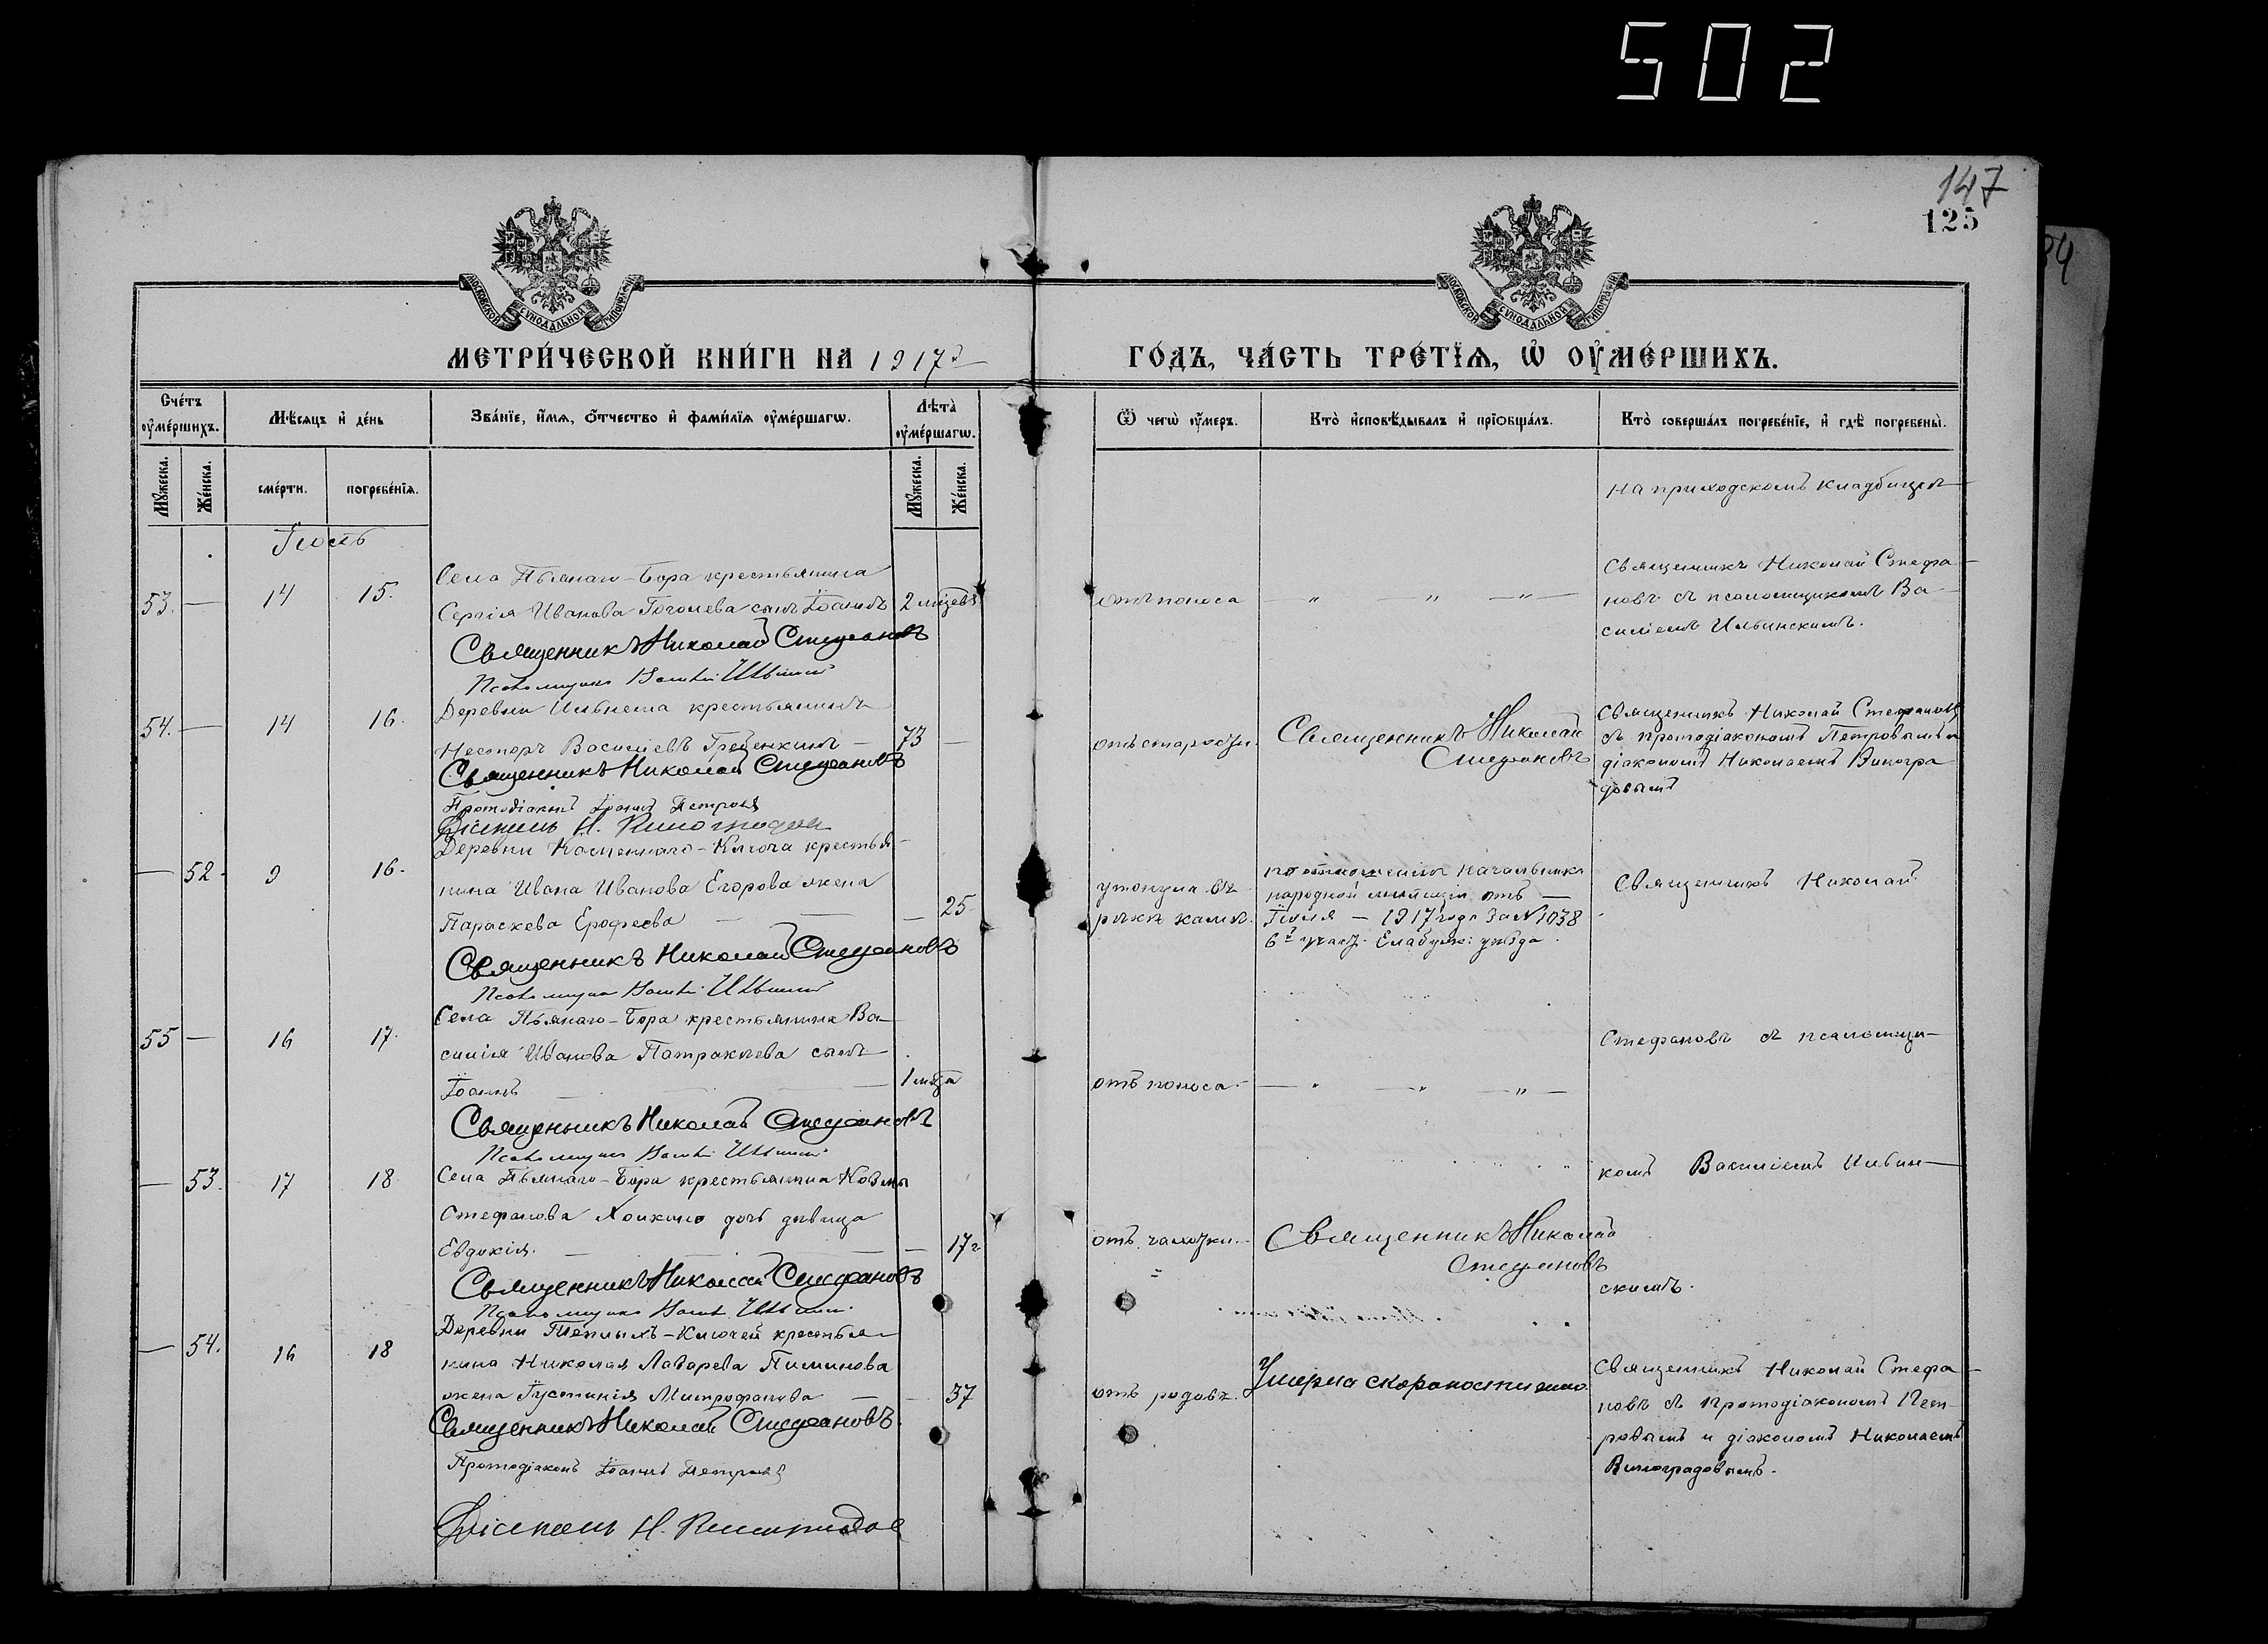 502
147
125
МЕТРИ́ЧЕСКОЙ КНИ́ГИ НА 1917 г.
ГО́ДЪ, ЧА́СТЬ ТРЕ́ТЇѦ, Ѡ҆ ОУ҆МЕ́РШИХЪ.
Сче́тъ оу҆ме́ршихъ.
Мѣ́сяцъ и҆ де́нь
Зва́нїе, и҆́мя, ѻ҆́тчество и҆ фами́лїя оу҆ме́ршагѡ.
Лѣта̀ оу҆ме́ршагѡ.
Ѿ чегѡ̀ оу҆́меръ.
Кто̀ и҆сповѣ́дывалъ и҆ прїѡбща́лъ.
Кто̀ соверша́лъ погребе́нїе, и҆ гдѣ̀ погребены̀.
Мꙋ́жеска.
Же́нска.
сме́рти.
погребе́нїя.
Мꙋ́жеска.
Же́нска.
на приходскомъ кладбищѣ
Іюль
53. — 14 15.
Села Пьянаго-Бора крестьянина
Сергія Иванова Гоголева сынъ Іоаннъ 2 мѣсяцевъ
Священникъ Николай Стефановъ
Псаломщикъ Василій Ильинскій
отъ поноса — „ „ — „ —
Священникъ Николай Стефа-
новъ съ псаломщикомъ Ва-
силіемъ Ильинскимъ.
54. — 14 16.
Деревни Ильнеша крестьянинъ
Несторъ Васильевъ Гребенкинъ — 73 —
Священникъ Николай Стефановъ
Протодіаконъ Іоаннъ Петровъ
Діаконъ Н. Виноградовъ
отъ старости.
Священникъ Николай
Стефановъ
Священникъ Николай Стефановъ
съ протодіакономъ Петровымъ и
діакономъ Николаемъ Виногра
довымъ
— 52. 9 16.
Деревни Каменнаго-Ключа крестья-
нина Ивана Иванова Егорова жена
Параскева Ерофеева — — — 25
Священникъ Николай Стефановъ
Псаломщикъ Василій Ильинскій
утонула въ
рѣкѣ камѣ.
по отношенію Начальника
народной милиціи отъ —
Іюля — 1917 года За № 1038
6й участ. Елабуж. уѣзда.
Священникъ Николай
55 — 16 17.
Села Пьянаго-Бора крестьянина Ва-
силія Иванова Патракѣева сынъ
Іоаннъ — — — 1 мѣсяца
Священникъ Николай Стефановъ
Псаломщикъ Василій Ильинскій
отъ поноса. — „ — „ — „ —
Стефановъ съ псаломщи-
— 53. 17 18.
Села Пьянаго-Бора крестьянина Козмы
Стефанова дочь дѣвица
Евдокія. — — — 17 г.
Священникъ Николай Стефановъ
Псаломщикъ Васил. Ильинскій.
отъ чахотки. —
Священникъ Николай
Стефановъ
комъ Василіемъ Ильин-
скимъ.
— 54. 16 18
Деревни Теплыхъ-Ключей крестья-
нина Николая Лазарева Пиминова
жена Іустинія Митрофанова — — 37
Священникъ Николай Стефановъ.
Протодіаконъ Іоаннъ Петровъ
Діаконъ Н. Виноградовъ
отъ родовъ.
Умерла скоропостижно.
Священникъ Николай Стефа-
новъ съ протодіакономъ Пет-
ровымъ и діакономъ Николаемъ
Виноградовымъ.